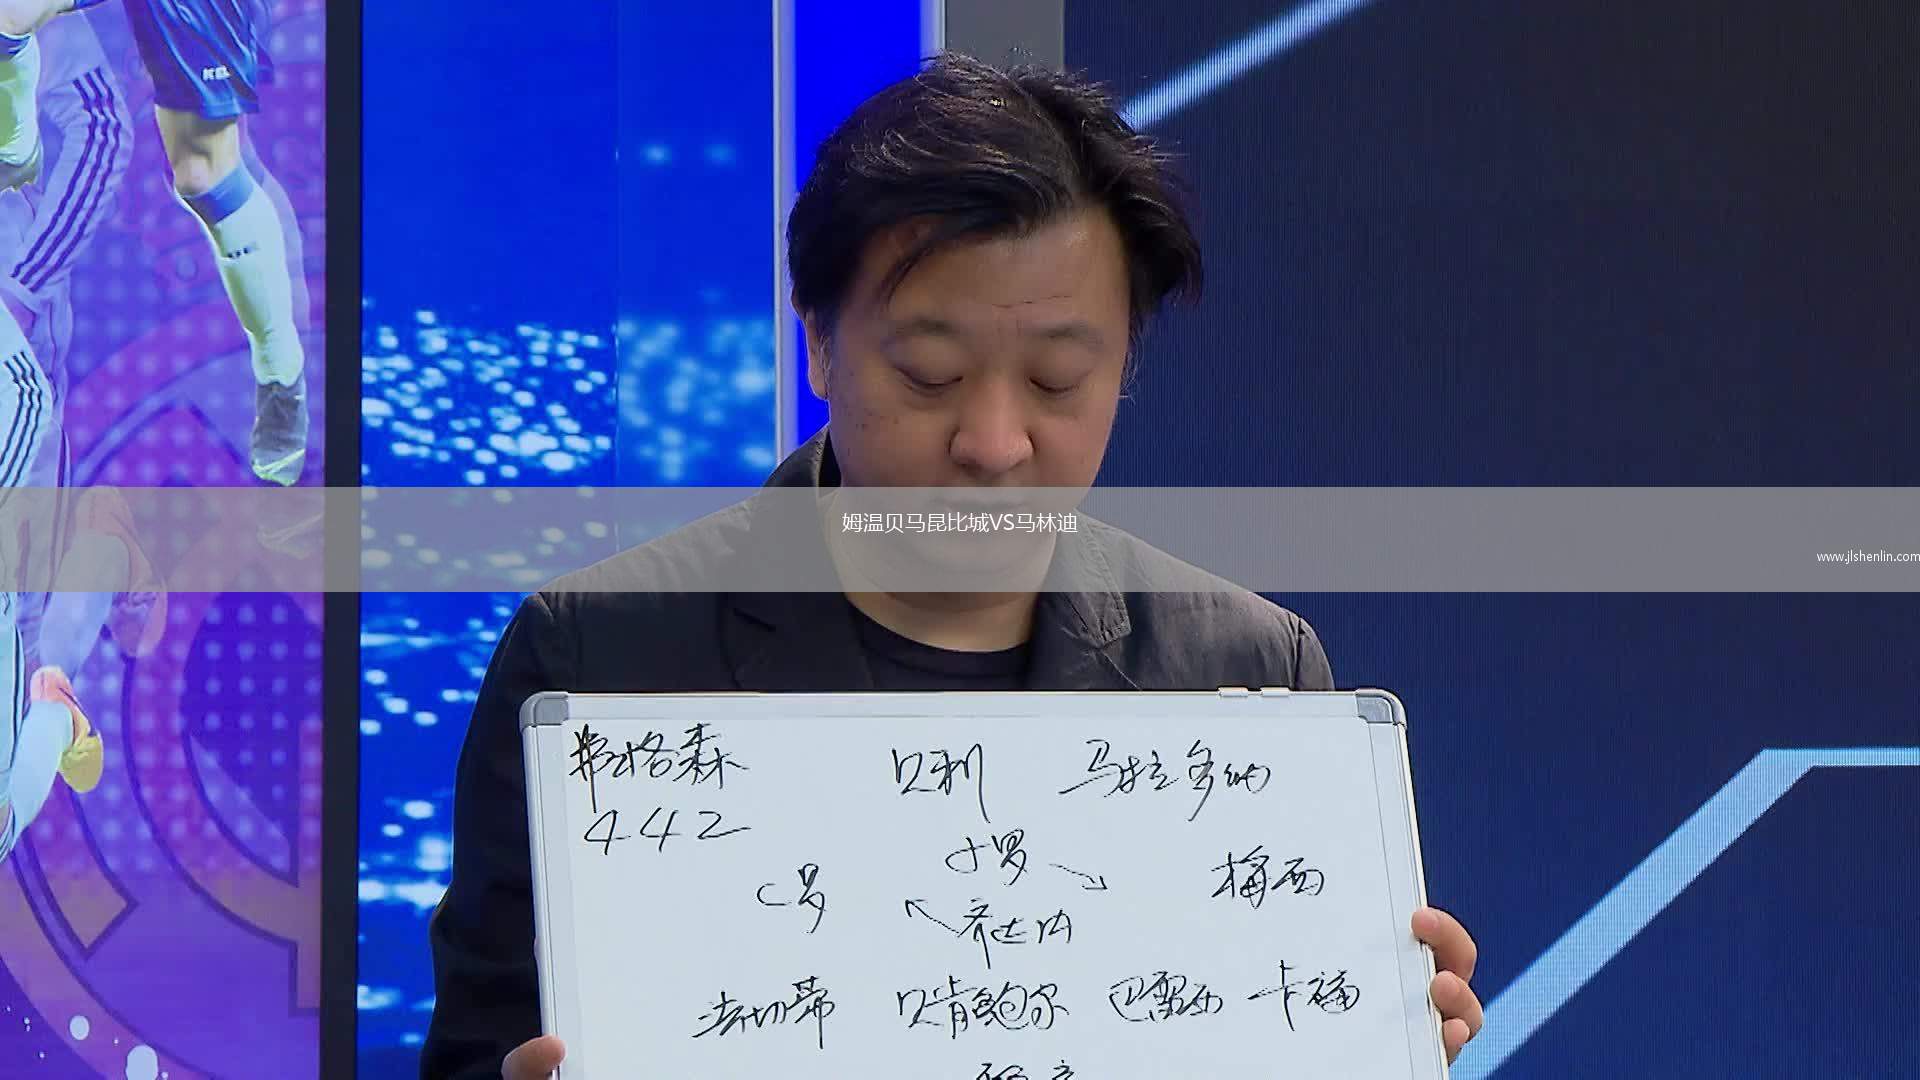 姆温贝马昆比城VS马林迪
www.jlshenlin.com
弗格森 贝利 马拉多纳
442
小罗
C罗 梅西
齐达内
法切蒂 贝肯鲍尔 巴雷西 卡福